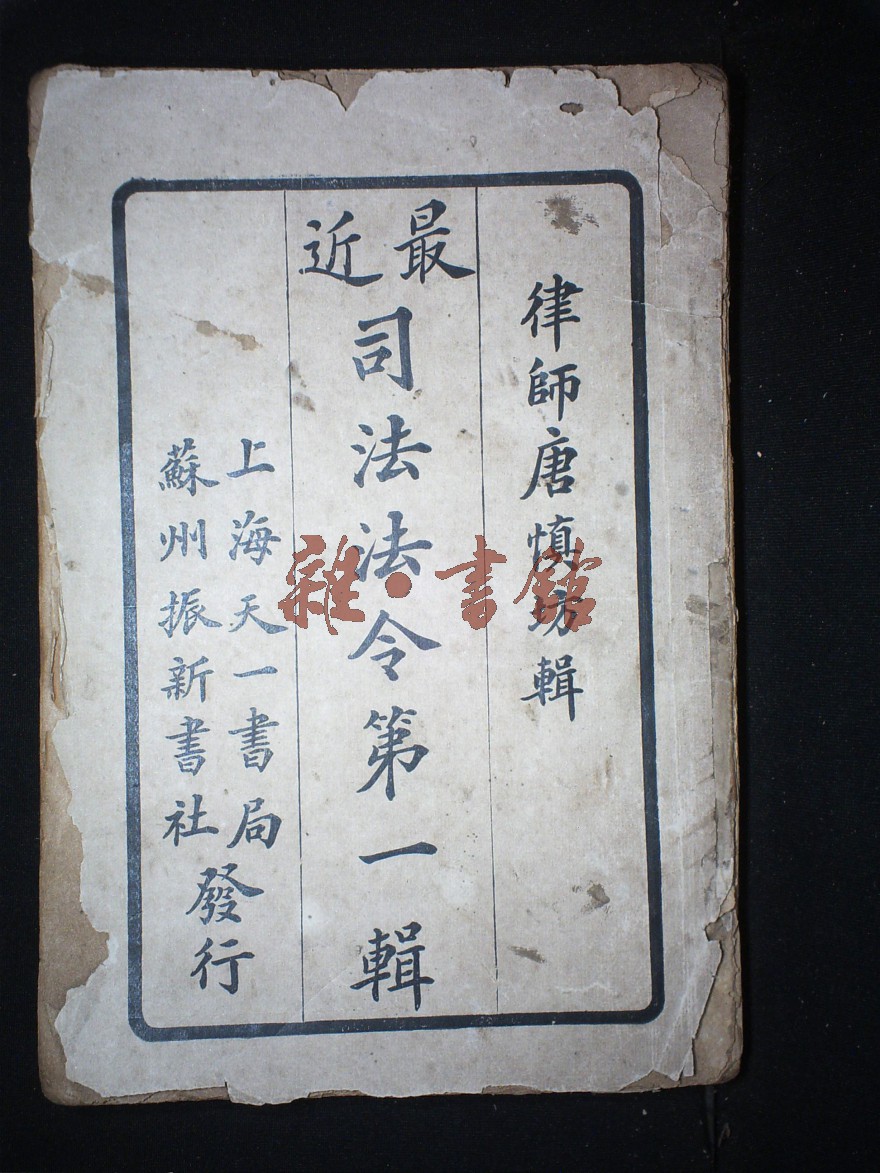 律師唐慎坊輯
最近
司法法令第一輯
上海天一書局
蘇州振新書社
發行
雜·書館